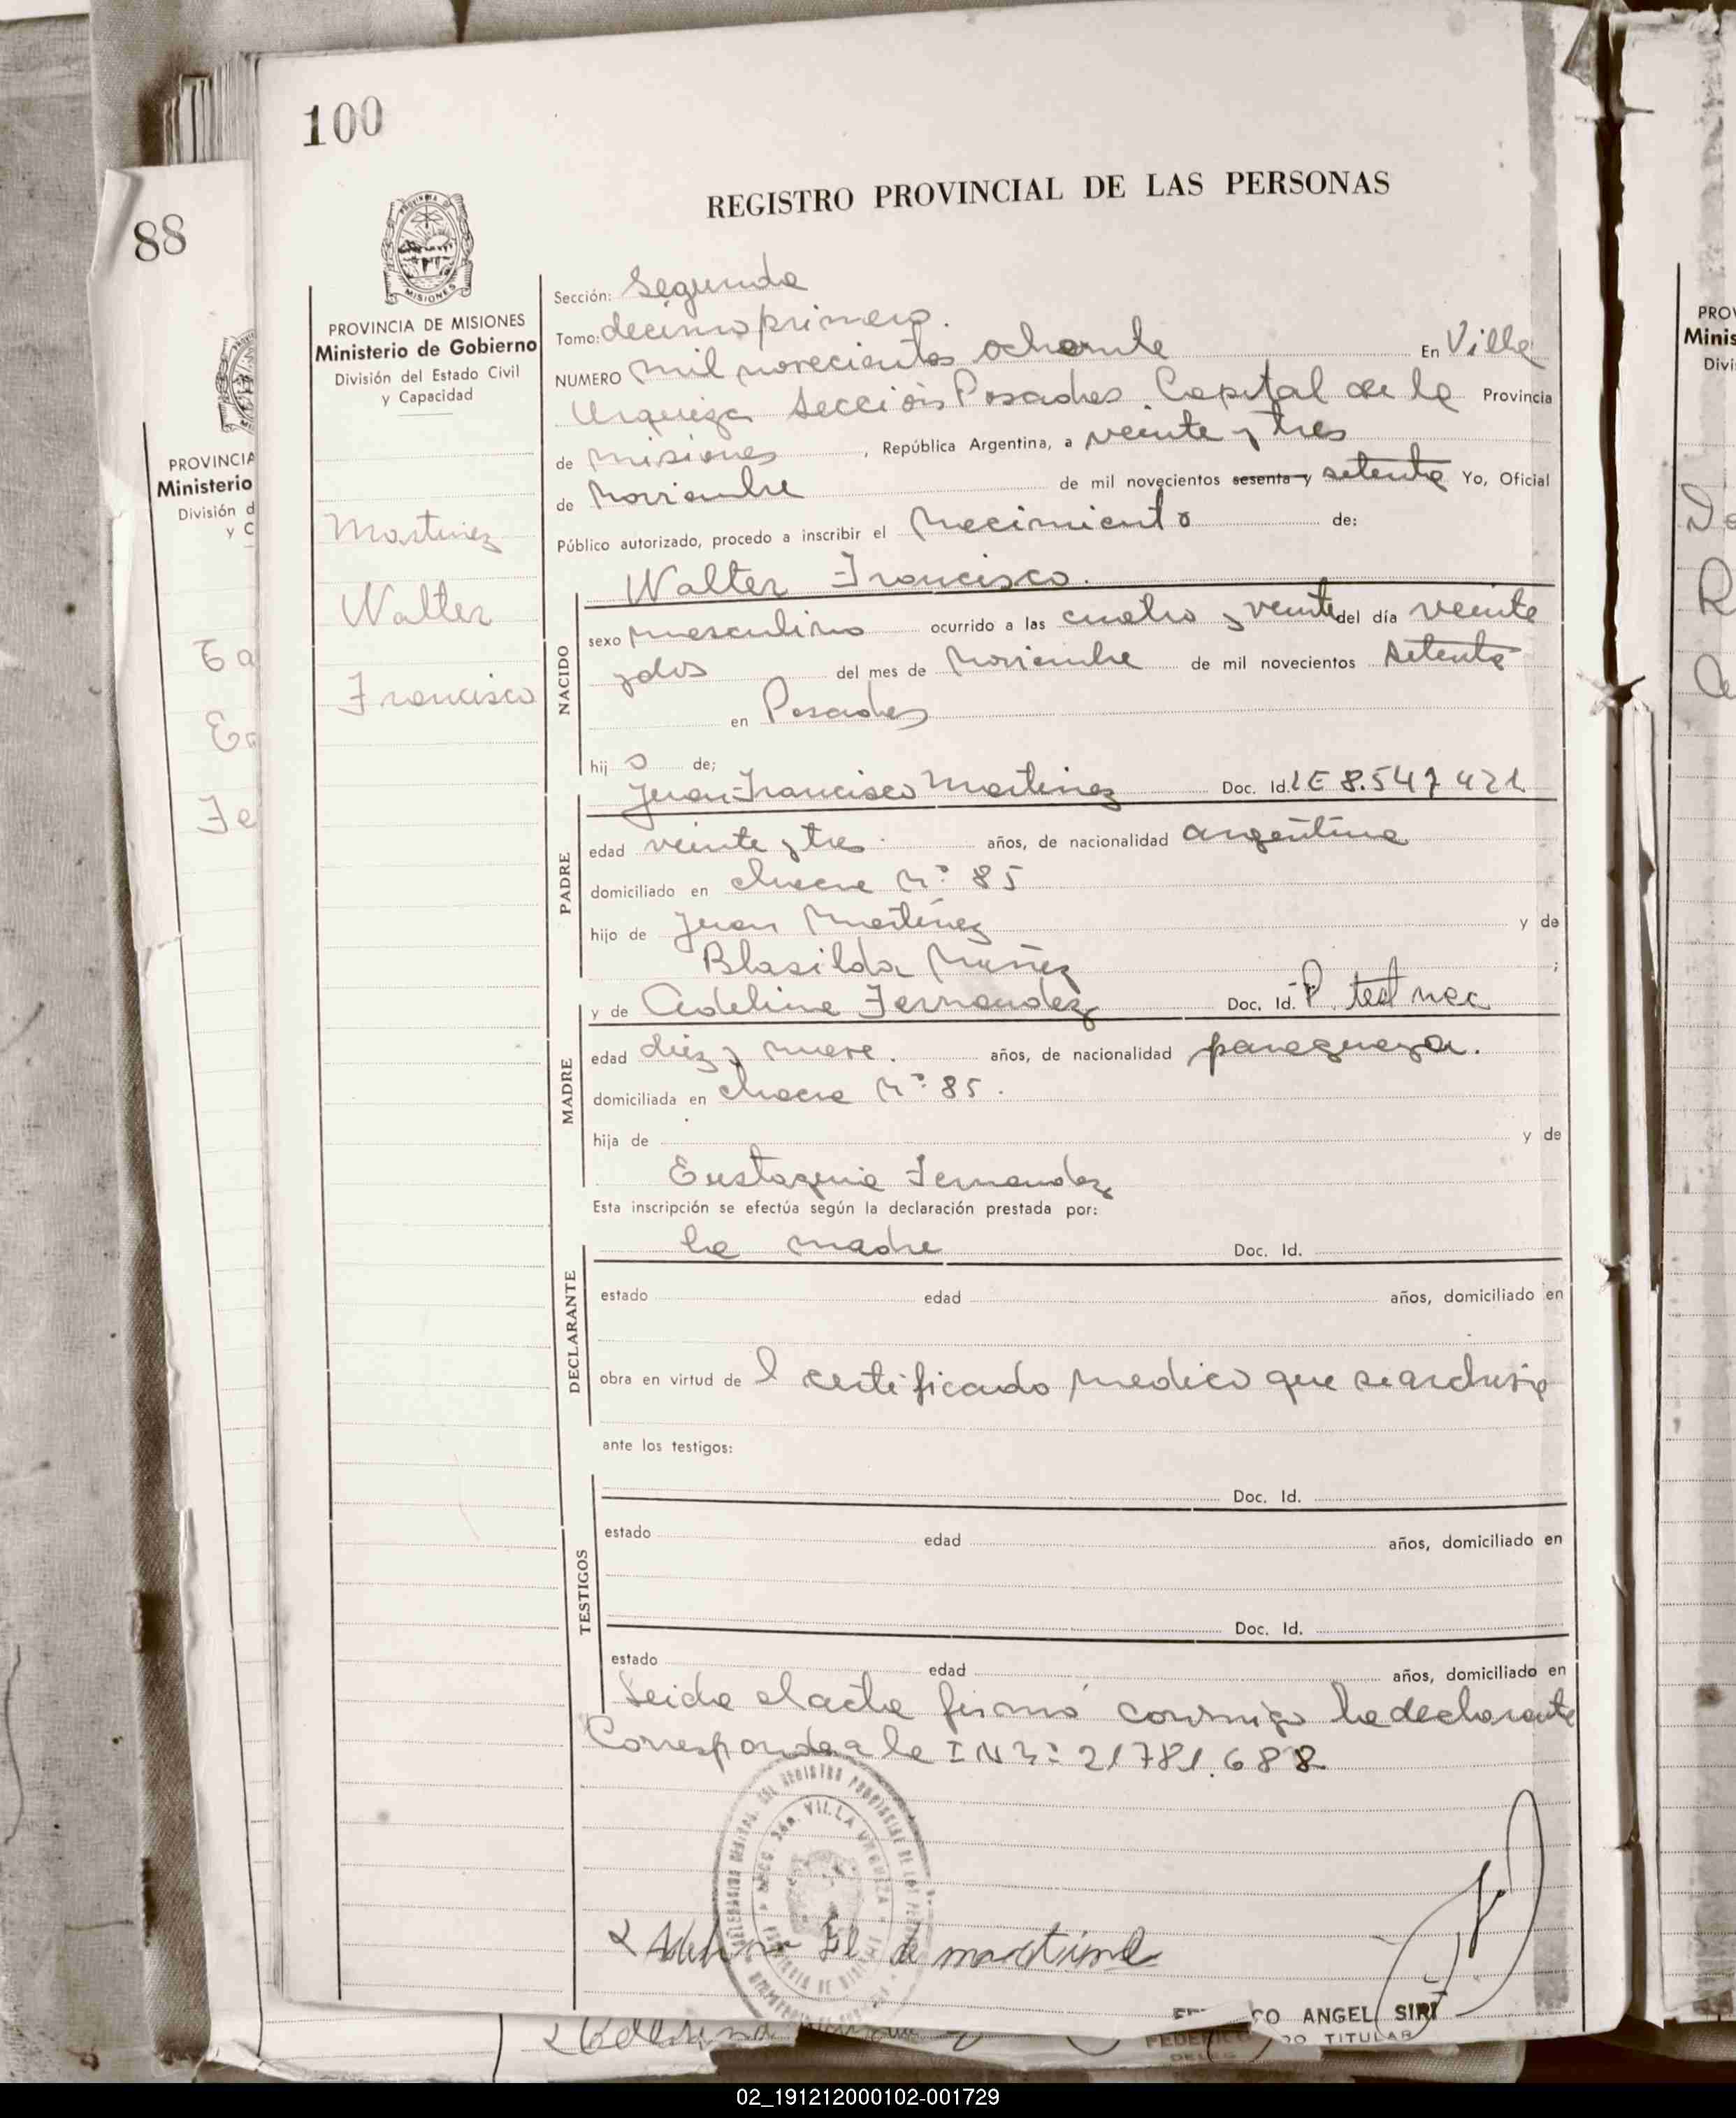 100
88
REGISTRO PROVINCIAL DE LAS PERSONAS
MISIONES
PROVINCIA DE MISIONES
Ministerio de Gobierno
División del Estado Civil
y Capacidad
Martinez
Walter
Francisco
PROVINCIA
Ministerio
División d
y C
Sección: Segunda
Tomo: decimo primero.
NUMERO mil novecientos ochenta En Villa
Urquiza Sección Posadas Capital de la Provincia
de Misiones, República Argentina, a veinte y tres
de Noviembre de mil novecientos sesenta y setenta Yo, Oficial
Público autorizado, procedo a inscribir el Nacimiento de:
Walter Francisco.
NACIDO
sexo masculino ocurrido a las cuatro y veinte del día veinte
y dos del mes de Noviembre de mil novecientos setenta
en Posadas
hij o de;
Juan Francisco Martinez Doc. Id. LE 8.547421
PADRE
edad veinte y tres años, de nacionalidad argentina
domiciliado en chacra Nº 85
hijo de Juan Martinez y de
Blasilda Nuñez ;
y de Adelina Fernandez Doc. Id. P. test nac
MADRE
edad diez y nueve. años, de nacionalidad paraguaya.
domiciliada en chacra Nº 85.
hija de y de
Eustaquia Fernandez
Esta inscripción se efectúa según la declaración prestada por:
la madre Doc. Id.
DECLARANTE
estado edad años, domiciliado en
obra en virtud de l certificado medico que se archiva
ante los testigos:
Doc. Id.
TESTIGOS
estado edad años, domiciliado en
Doc. Id.
estado edad años, domiciliado en
Leida el acta firmó conmigo la declarante
Corresponde a la I Nº 21781.688
VILLA URQUIZA
Adelina F. de martinez
CO ANGEL SIRI
DO TITULAR
PRO
Minis
Divi
02_191212000102-001729